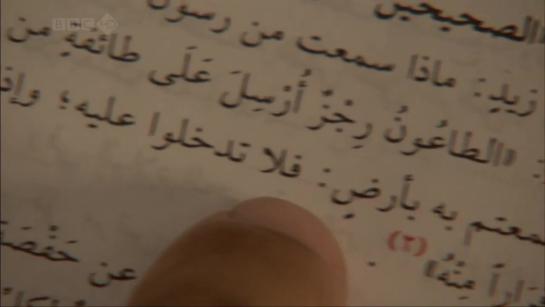 BBC HD
الصحيحين
زيدٍ: ماذا سمعت من رسول
: «الطاعُونُ رِجْزٌ أُرْسِلَ عَلَى طائفةٍ من
سمعتم به بأرضٍ: فلا تدخلوا عليه؛ وإذ
راراً مِنْهُ» (٢) .
عن حَفْصَة